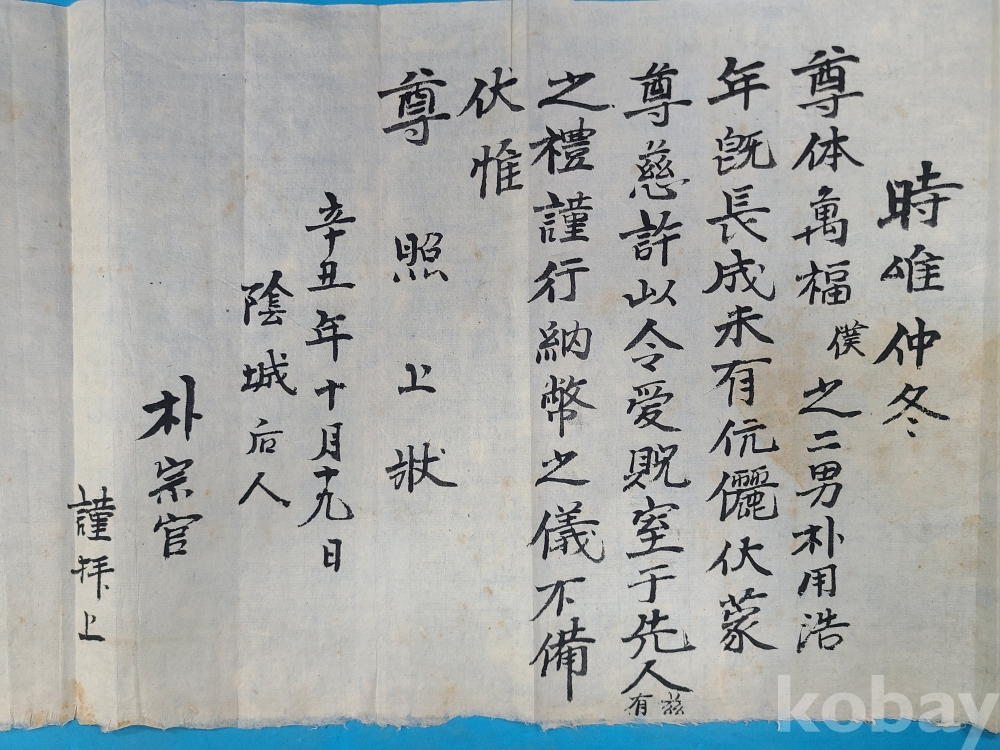 時惟仲冬
尊体萬福僕之二男朴用浩
年旣長成未有伉儷伏蒙
尊慈許以令愛貺室于先人
玆有
之禮謹行納幣之儀不備
伏惟
尊照上狀
辛丑年十月十九日
陰城后人
朴宗官
謹拜上
kobay